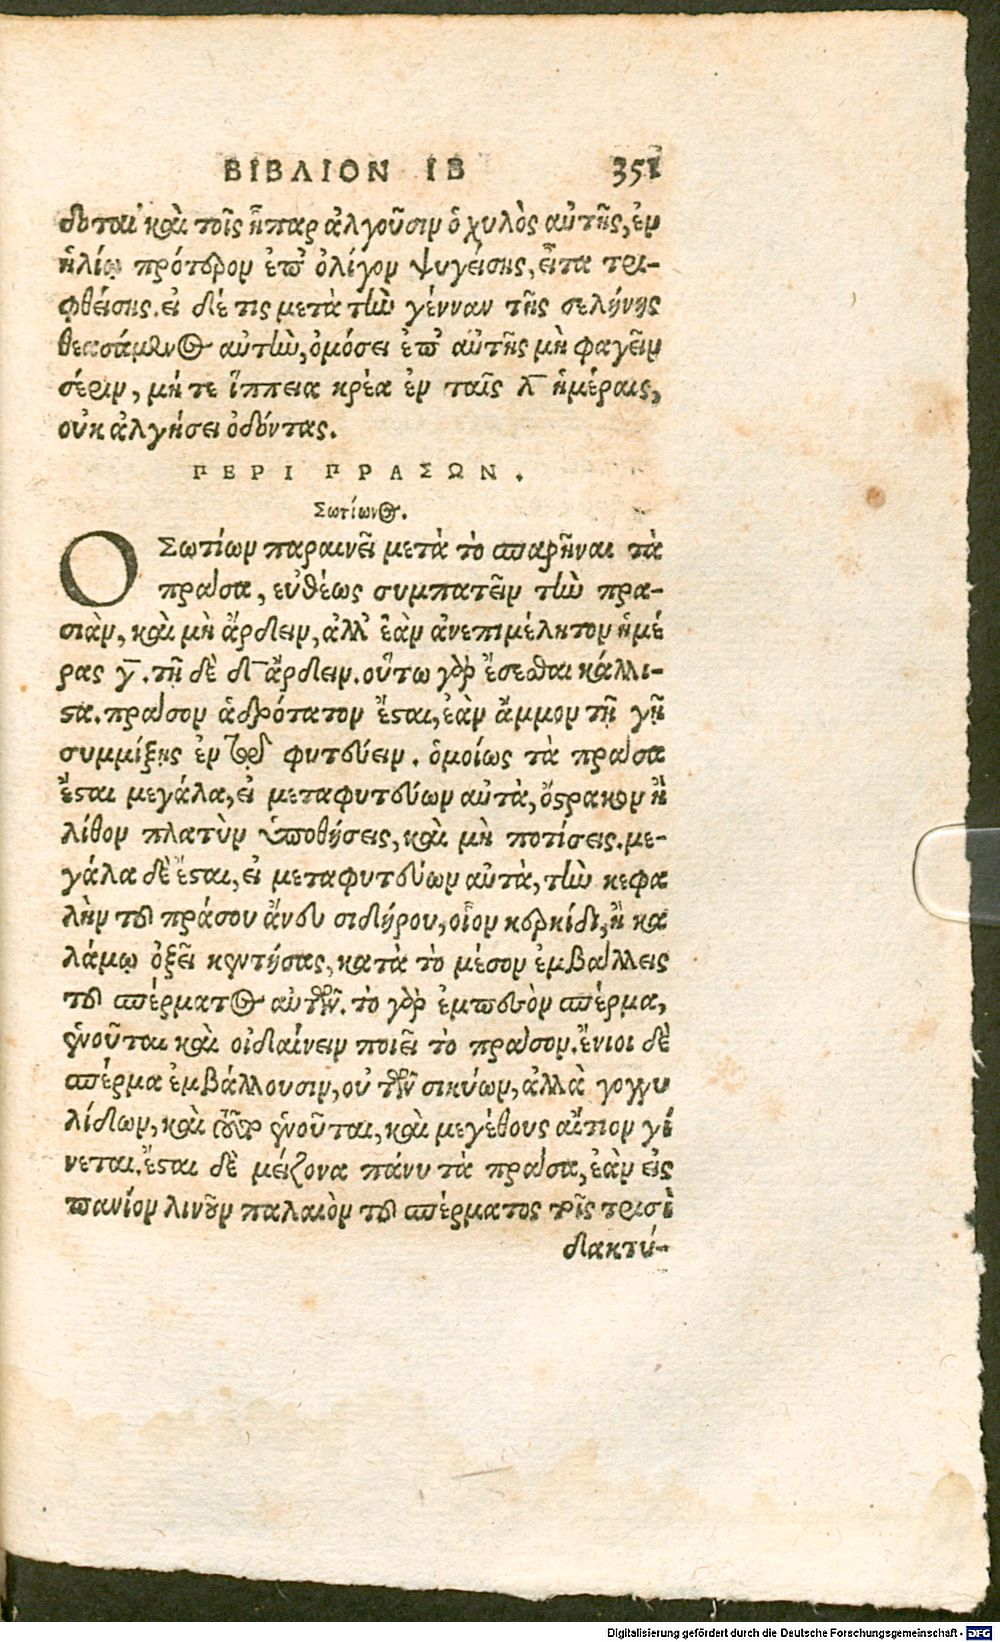 ΒΙΒΛΙΟΝ ΙΒ 351
δοται καὶ τοῖς ἧπαρ ἀλγοῦσιν ὁ χυλὸς αὐτῆς, ἐν
ἡλίῳ πρότερον ἐπ' ὀλίγον ψυγείσης, εἶτα τρι-
φθείσης. εἰ δέ τις μετὰ τὴν γένναν τῆς σελήνης
θεασάμενος αὐτὴν, ὀμόσει ἐπ' αὐτῆς μὴ φαγεῖν
σέριν, μή τε ἵππεια κρέα ἐν ταῖς λ ἡμέραις,
οὐκ ἀλγήσει ὀδόντας.
ΠΕΡΙ ΠΡΑΣΩΝ.
Σωτίωνος.
Ο Σωτίων παραινεῖ μετὰ τὸ σπαρῆναι τὰ
πράσα, εὐθέως συμπατεῖν τὴν πρα-
σιὰν, καὶ μὴ ἄρδειν, ἀλλ' ἐὰν ἀνεπιμέλητον ἡμέ
ρας γ. τῇ δὲ δ ἄρδειν. οὕτω γὰρ ἔσεσθαι κάλλι-
στα. πράσον ἁδρότατον ἔσται, ἐὰν ἄμμον τῇ γῇ
συμμίξῃς ἐν τῷ φυτεύειν. ὁμοίως τὰ πράσα
ἔσται μεγάλα, εἰ μεταφυτεύων αὐτὰ, ὄστρακον ἢ
λίθον πλατὺν ὑποθήσεις, καὶ μὴ ποτίσεις. με-
γάλα δὲ ἔσται, εἰ μεταφυτεύων αὐτὰ, τὴν κεφα
λὴν τοῦ πράσου ἄνευ σιδήρου, οἷον κερκίδι, ἢ κα
λάμῳ ὀξεῖ κεντήσας, κατὰ τὸ μέσον ἐμβάλλεις
τοῦ σπέρματος αὐτῶν. τὸ γὰρ ἐμπεσὸν σπέρμα,
ἑνοῦται καὶ οἰδαίνειν ποιεῖ τὸ πράσον. ἔνιοι δὲ
σπέρμα ἐμβάλλουσιν, οὐ τῶν σικύων, ἀλλὰ γογγυ
λίδων, καὶ οὖν ἑνοῦται, καὶ μεγέθους αἴτιον γί
νεται. ἔσται δὲ μείζονα πάνυ τὰ πράσα, ἐὰν εἰς
πανίον λινοῦν παλαιὸν τοῦ σπέρματος τοῖς τρισὶ
δακτύ-
Digitalisierung gefördert durch die Deutsche Forschungsgemeinschaft - DFG